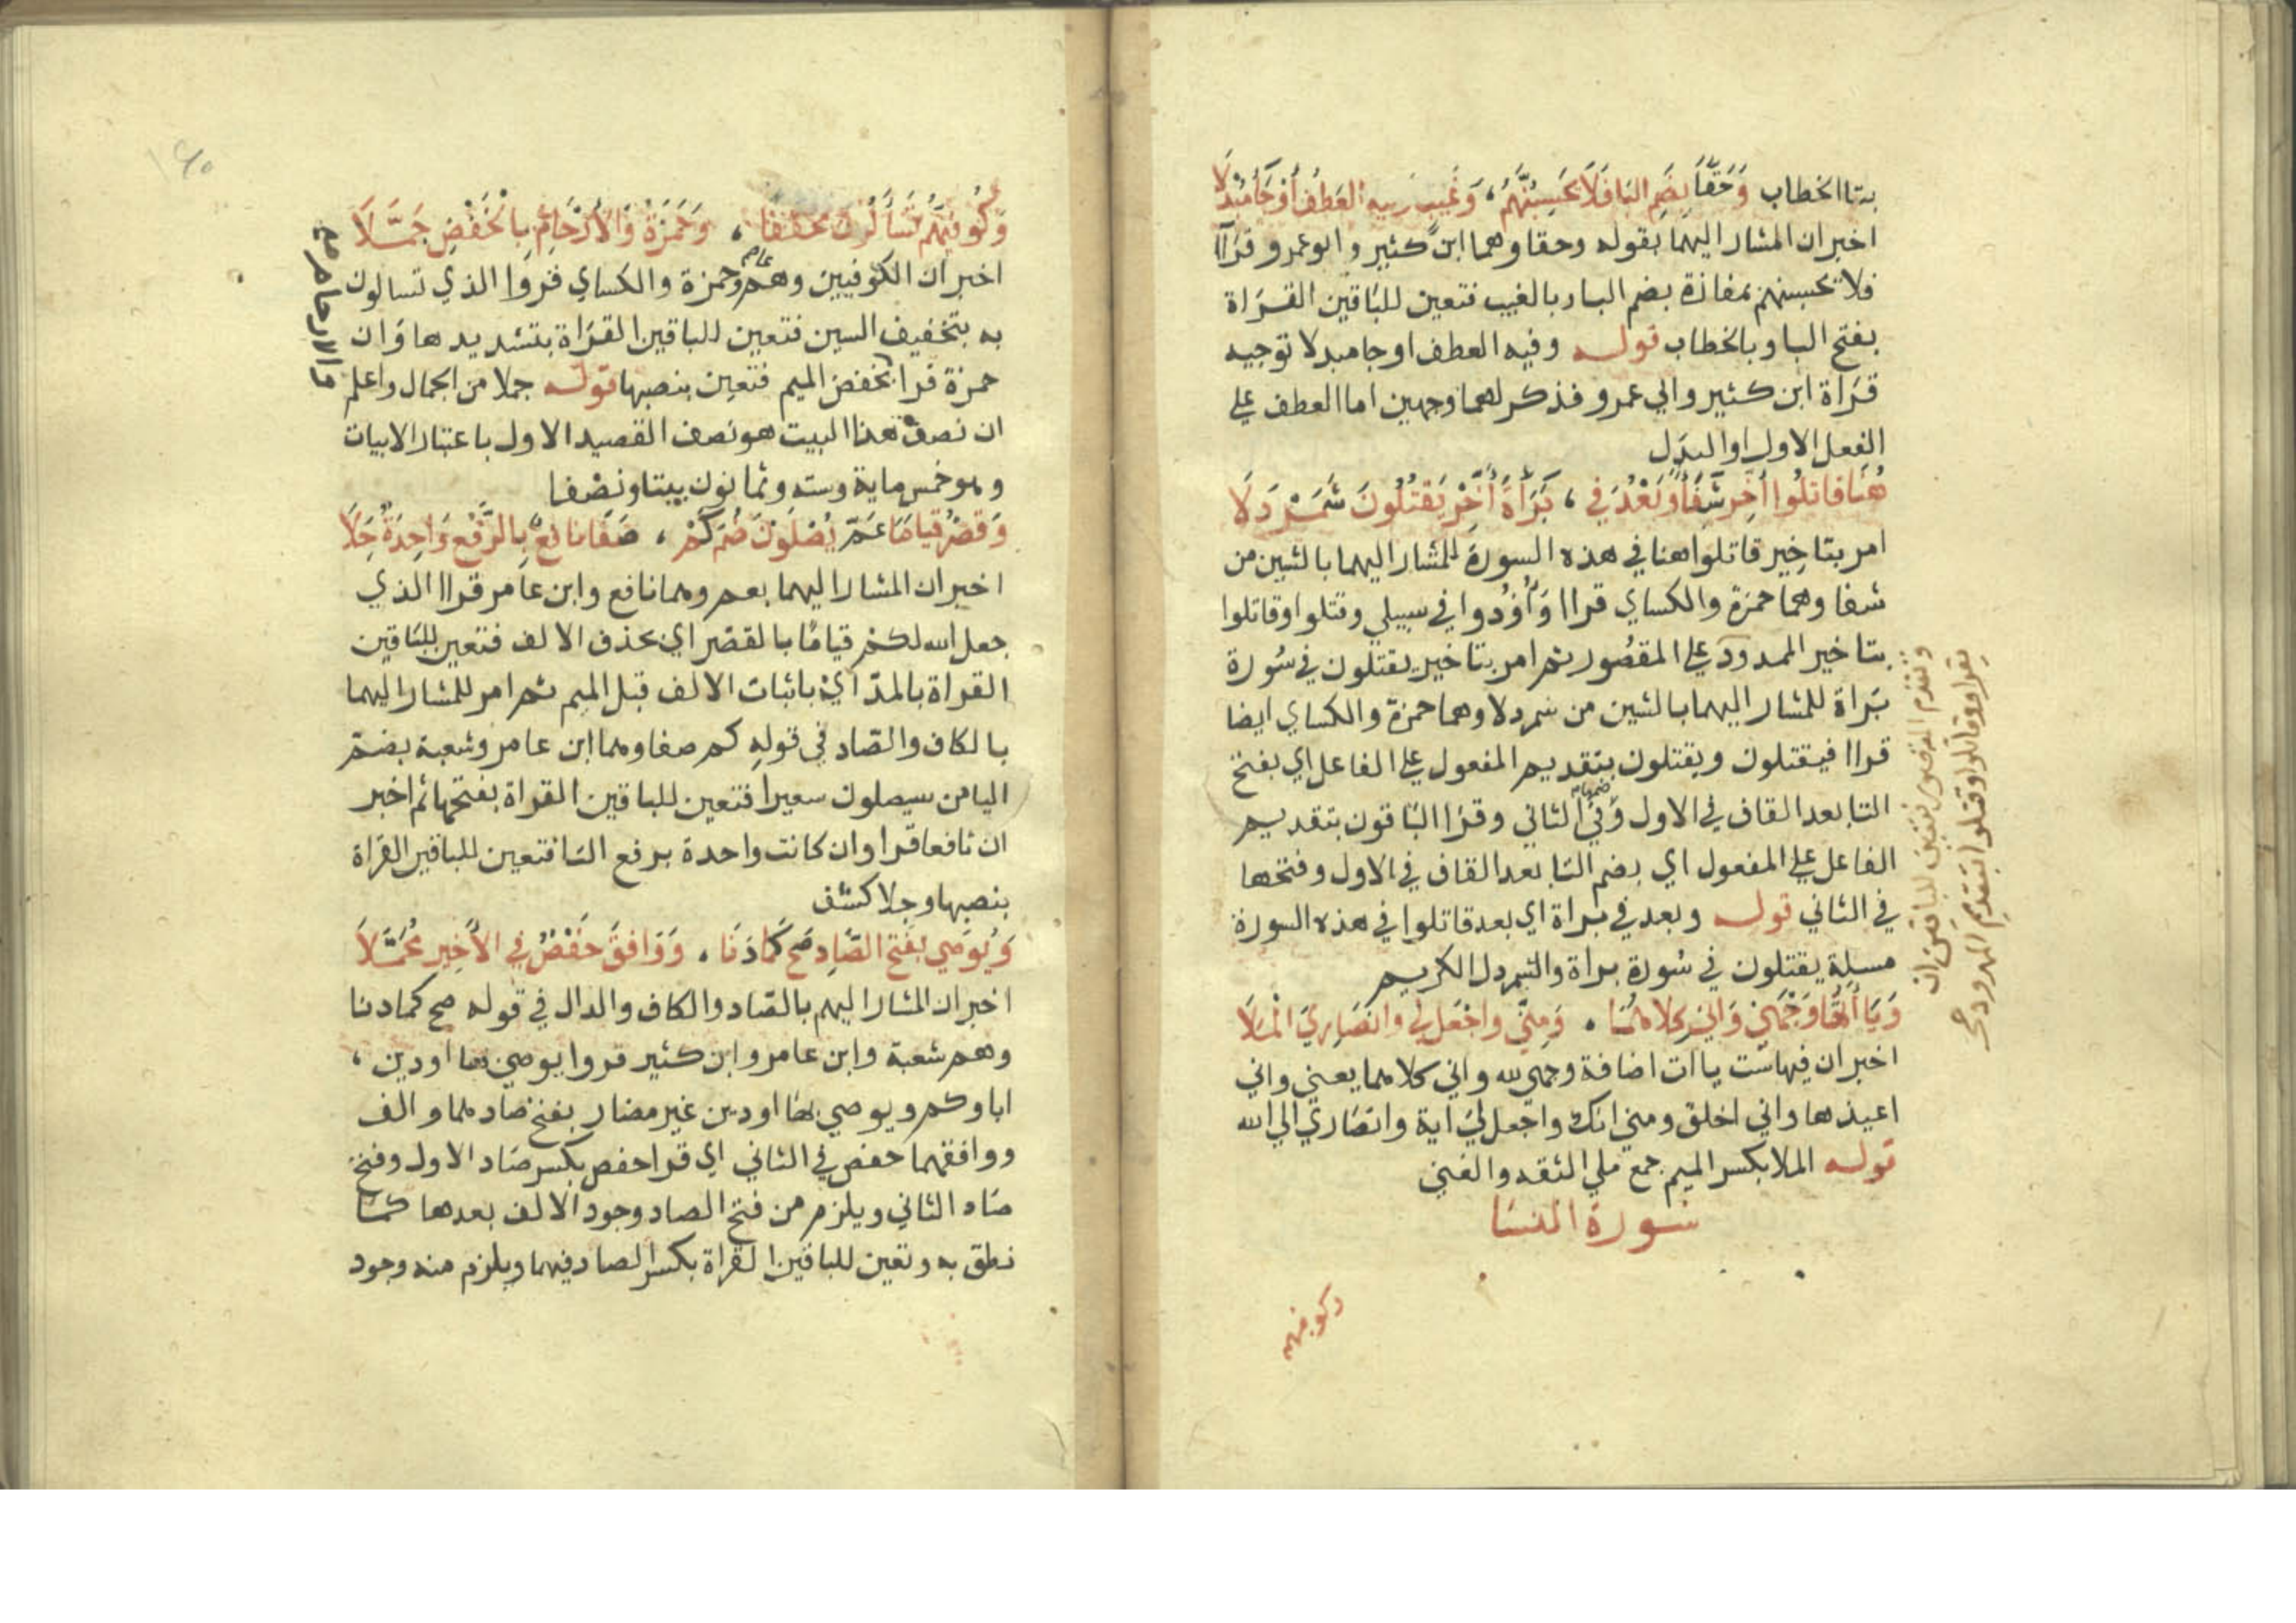 بتا الخطاب وَحَقًّا بضم البا فلا يحسبنهم ، وغيب وفيه العطف أو جا مبدلا
اخبر ان المشار اليهما بقوله وحقا وهما ابن كثير وابو عمرو قرآا
فلا تحسبنهم بمفازة بضم البا وبالغيب فتعين للباقين القراة
بفتح البا وبالخطاب قوله وفيه العطف او جا مبدلا توجيه
قراة ابن كثير وابي عمرو فذكر لهما وجهين اما العطف على
الفعل الاول او البدل
هُنا قاتلوا أخر شفاء وبعد في ، براة أخر يقتلون شمردلا
امر بتاخير قاتلوا هنا في هذه السورة للمشار اليهما بالشين من
شفا وهما حمزة والكساي قراا وأوذوا في سبيلي وقتلوا وقاتلوا
بتاخير الممدود على المقصور ثم امر بتاخير يقتلون في سورة
براة للمشار اليهما بالشين من شمردلا وهما حمزة والكساي ايضا
قراا فيقتلون ويقتلون بتقديم المفعول على الفاعل اي بفتح
التا بعد القاف في الاول وفي الثاني وقرا الباقون بتقديم
الفاعل على المفعول اي بضم التا بعد القاف في الاول وفتحها
في الثاني قوله وبعد في براة اي بعد قاتلوا في هذه السورة
مسلة يقتلون في سورة براة والشمردل الكريم
وَيَا أتها وجهي واني كلاهما . ومني واجعل لي وانصاري الملا
اخبر ان فيها ست ياات اضافة وجهي لله واني كلاهما يعني واني
اعيذها واني اخلق ومني انك واجعل لي اية وانصاري الي الله
قوله الملا بكسر الميم جمع ملي الثقه والغني
سورة النسا
وكوفيهم
وتقدم المقصور فتعين للباقين ان
يقراو وقاتلوا وقتلوا بتقديم الممدود على
وكوفيهم تسألون مخففا ، وحمزة والأرحام بالخفض جملا
اخبر ان الكوفيين وهم عاصم وحمزة والكساي قروا الذي تسالون
به بتخفيف السين فتعين للباقين القراة بتشديدها وان
حمزة قرا بخفض الميم فتعين بنصبها قوله جملا من الجمال واعلم
والارحام صح
ان نصف هذا البيت هو نصف القصيد الاول باعتبار الابيات
وهو خمس ماية وسته وثمانون بيتا ونصفا
وقصر قياما عم يصلون ضم كم ، صفا نافع بالرفع واحدة جلا
اخبر ان المشار اليهما بعم وهما نافع وابن عامر قراا الذي
جعل الله لكم قياما بالقصر اي بحذف الالف فتعين للباقين
القراة بالمد اي باثبات الالف قبل الميم ثم امر للمشار اليهما
بالكاف والصاد في قوله كم صفا وهما ابن عامر وشعبة بضم
اليا من سيصلون سعيرا فتعين للباقين القراة بفتحها ثم اخبر
ان نافعا قرا وان كانت واحدة برفع التا فتعين للباقين القراة
بنصبها وجلا كشف
ويوصي بفتح الصاد صح كما دنا . ووافق حفص في الأخير مجملا
اخبر ان المشار اليهم بالصاد والكاف والدال في قوله صح كما دنا
وهم شعبة وابن عامر وابن كثير قروا يوصي بها او دين ،
اباوكم ويوصي بها او دين غير مضار بفتح صادهما والف
ووافقهما حفص في الثاني اي قرا حفص بكسر صاد الاول وفتح
صاد الثاني ويلزم من فتح الصاد وجود الالف بعدها كما
نطق به وتعين للباقين القراة بكسر الصاد فيهما ويلزم منه وجود